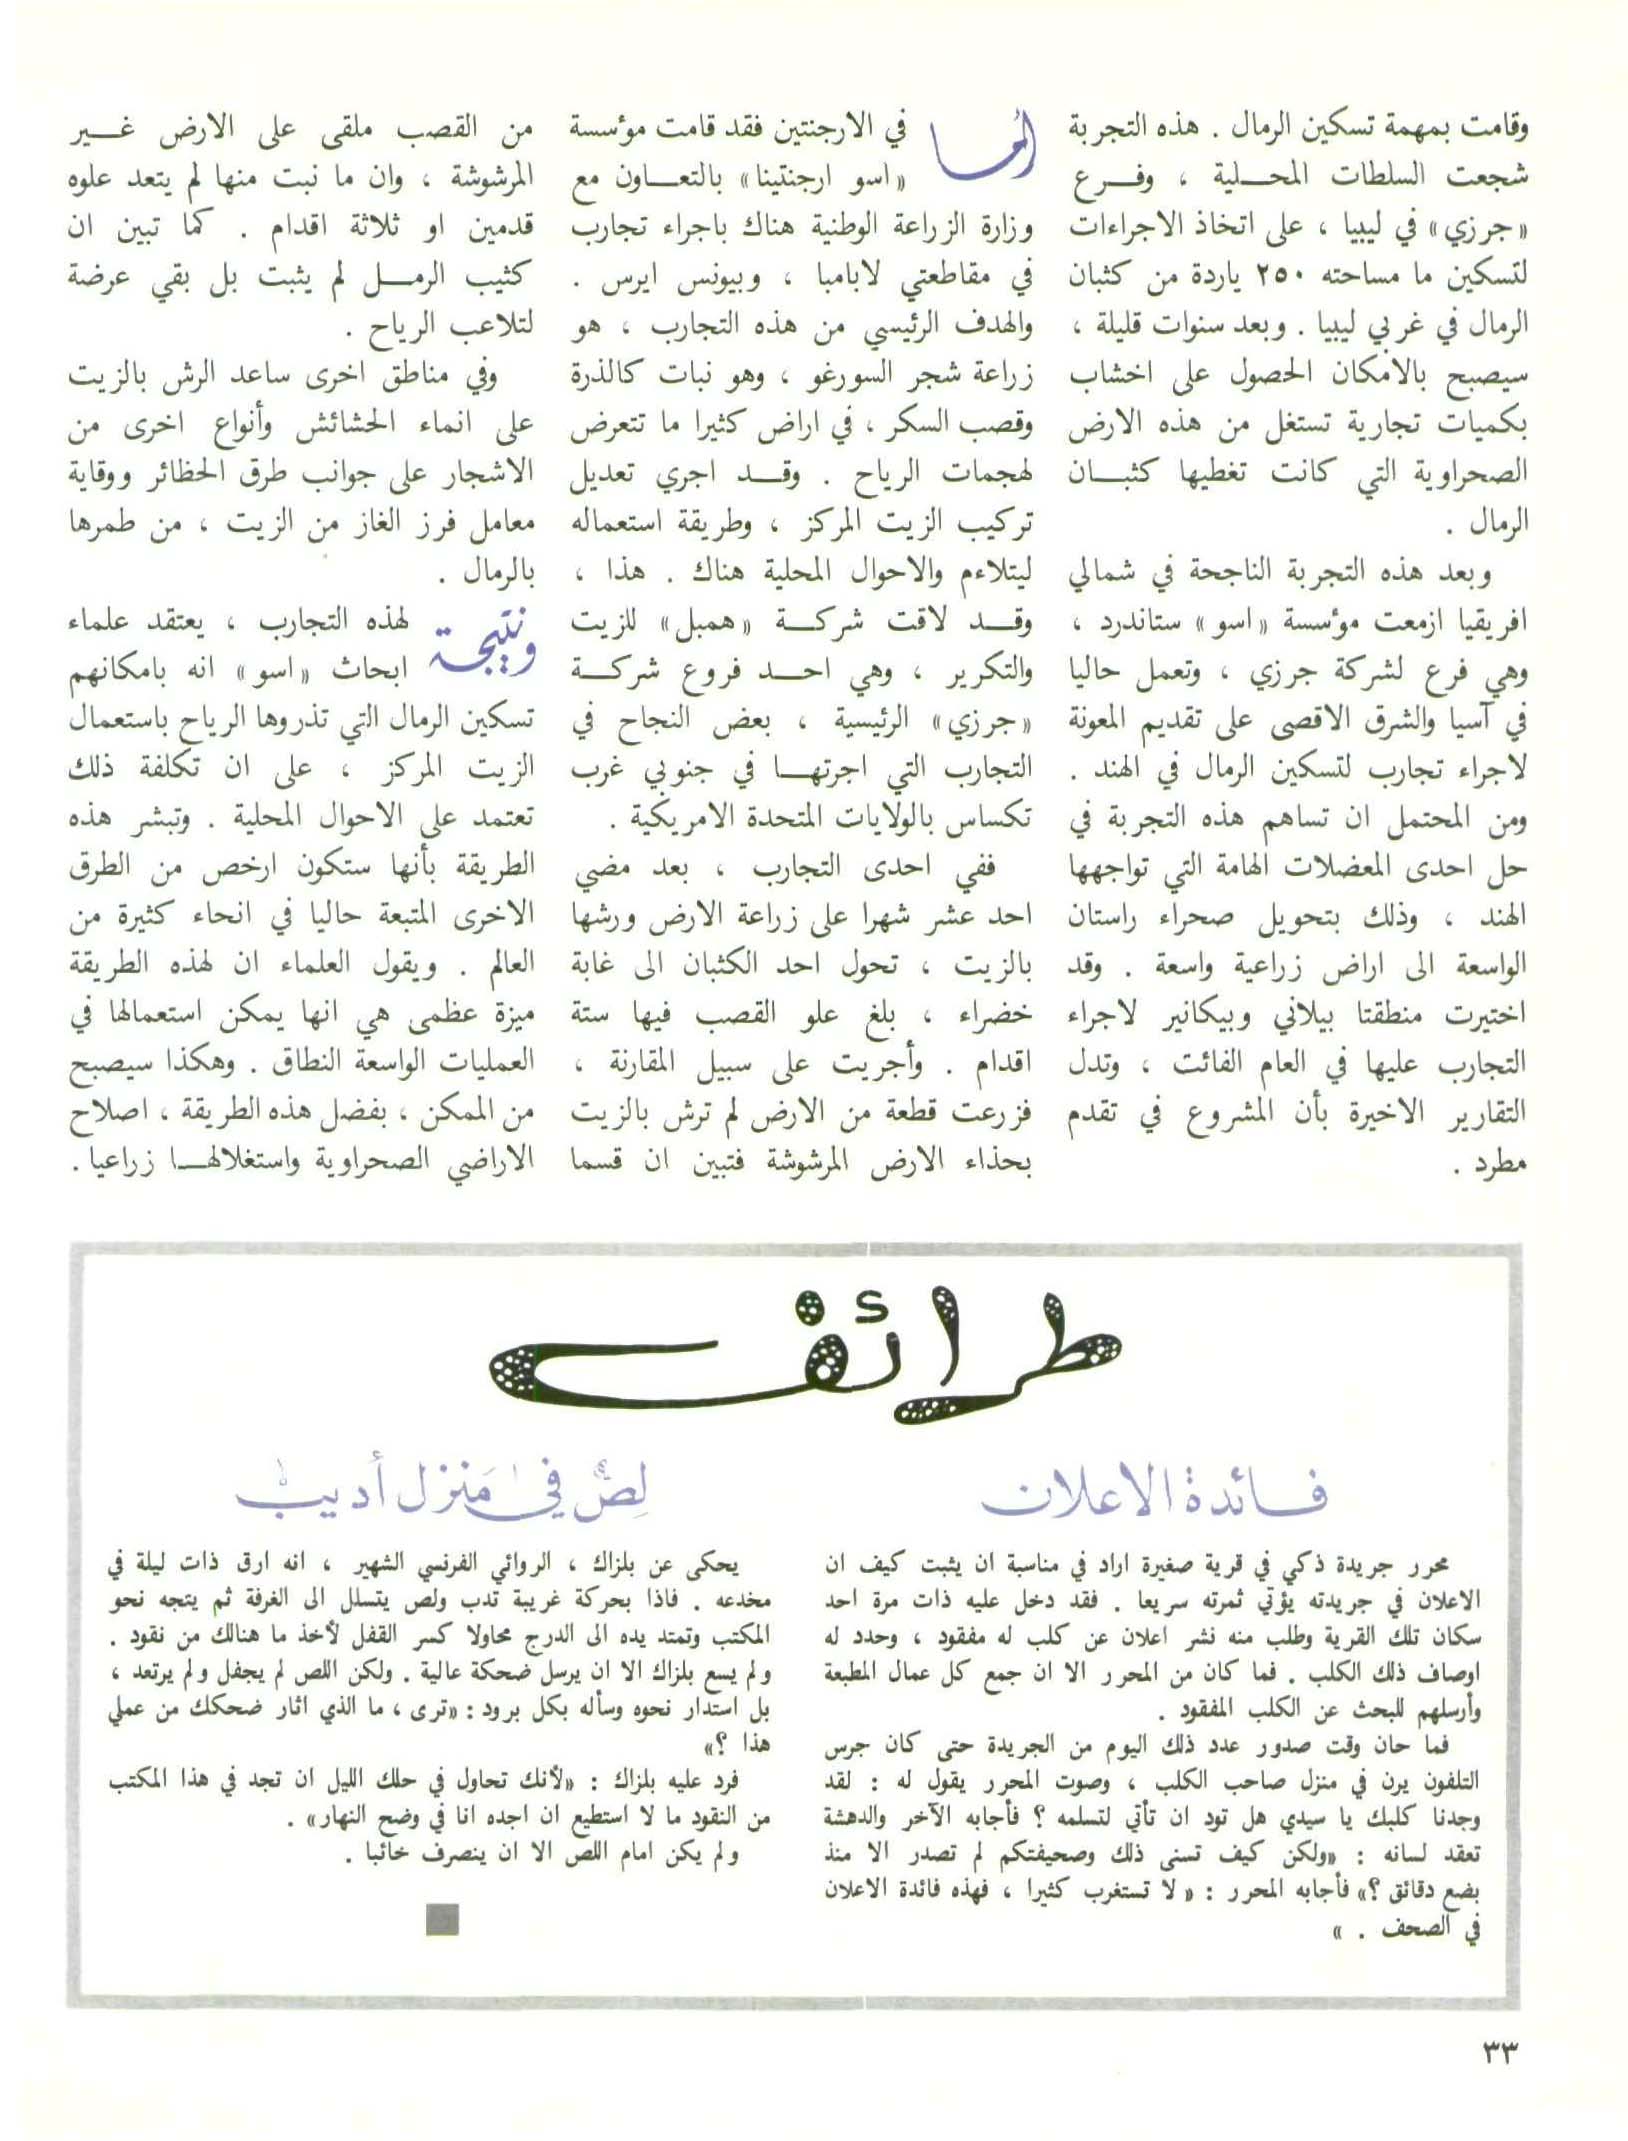 وقامت بمهمة تسكين الرمال . هذه التجربة
شجعت السلطات المحلية ، وفرع
«جرزي» في ليبيا ، على اتخاذ الاجراءات
لتسكين ما مساحته ٢٥٠ ياردة من كثبان
الرمال في غربي ليبيا . وبعد سنوات قليلة ،
سيصبح بالامكان الحصول على اخشاب
بكميات تجارية تستغل من هذه الارض
الصحراوية التي كانت تغطيها كثبان
الرمال .
وبعد هذه التجربة الناجحة في شمالي
افريقيا ازمعت مؤسسة «اسو» ستاندرد ،
وهي فرع لشركة جرزي ، وتعمل حاليا
في آسيا والشرق الاقصى على تقديم المعونة
لاجراء تجارب لتسكين الرمال في الهند .
ومن المحتمل ان تساهم هذه التجربة في
حل احدى المعضلات الهامة التي تواجهها
الهند ، وذلك بتحويل صحراء راستان
الواسعة الى اراض زراعية واسعة . وقد
اختيرت منطقتا بيلاني وبيكانير لاجراء
التجارب عليها في العام الفائت ، وتدل
التقارير الاخيرة بأن المشروع في تقدم
مطرد .
أما في الارجنتين فقد قامت مؤسسة
«اسو ارجنتينا» بالتعاون مع
وزارة الزراعة الوطنية هناك باجراء تجارب
في مقاطعتي لابامبا ، وبيونس ايرس .
والهدف الرئيسي من هذه التجارب ، هو
زراعة شجر السورغو ، وهو نبات كالذرة
وقصب السكر ، في اراض كثيرا ما تتعرض
لهجمات الرياح . وقد اجري تعديل
تركيب الزيت المركز ، وطريقة استعماله
ليتلاءم والاحوال المحلية هناك . هذا ،
وقد لاقت شركة «همبل» للزيت
والتكرير ، وهي احد فروع شركة
«جرزي» الرئيسية ، بعض النجاح في
التجارب التي اجرتها في جنوبي غرب
تكساس بالولايات المتحدة الامريكية .
ففي احدى التجارب ، بعد مضي
احد عشر شهرا على زراعة الارض ورشها
بالزيت ، تحول احد الكثبان الى غابة
خضراء ، بلغ علو القصب فيها ستة
اقدام . وأجريت على سبيل المقارنة ،
فزرعت قطعة من الارض لم ترش بالزيت
بحذاء الارض المرشوشة فتبين ان قسما
من القصب ملقى على الارض غير
المرشوشة ، وان ما نبت منها لم يتعد علوه
قدمين او ثلاثة اقدام . كما تبين ان
كثيب الرمل لم يثبت بل بقي عرضة
لتلاعب الرياح .
وفي مناطق اخرى ساعد الرش بالزيت
على انماء الحشائش وأنواع اخرى من
الاشجار على جوانب طرق الحظائر ووقاية
معامل فرز الغاز من الزيت ، من طمرها
بالرمال .
ونتيجة لهذه التجارب ، يعتقد علماء
ابحاث «اسو» انه بامكانهم
تسكين الرمال التي تذروها الرياح باستعمال
الزيت المركز ، على ان تكلفة ذلك
تعتمد على الاحوال المحلية . وتبشر هذه
الطريقة بأنها ستكون ارخص من الطرق
الاخرى المتبعة حاليا في انحاء كثيرة من
العالم . ويقول العلماء ان لهذه الطريقة
ميزة عظمى هي انها يمكن استعمالها في
العمليات الواسعة النطاق . وهكذا سيصبح
من الممكن ، بفضل هذه الطريقة ، اصلاح
الاراضي الصحراوية واستغلالها زراعيا .
طرائف
فائدة الاعلان
محرر جريدة ذكي في قرية صغيرة اراد في مناسبة ان يثبت كيف ان
الاعلان في جريدته يؤتي ثمرته سريعا . فقد دخل عليه ذات مرة احد
سكان تلك القرية وطلب منه نشر اعلان عن كلب له مفقود ، وحدد له
اوصاف ذلك الكلب . فما كان من المحرر الا ان جمع كل عمال المطبعة
وأرسلهم للبحث عن الكلب المفقود .
فما حان وقت صدور عدد ذلك اليوم من الجريدة حتى كان جرس
التلفون يرن في منزل صاحب الكلب ، وصوت المحرر يقول له : لقد
وجدنا كلبك يا سيدي هل تود ان تأتي لتسلمه ؟ فأجابه الآخر والدهشة
تعقد لسانه : «ولكن كيف تسنى ذلك وصحيفتكم لم تصدر الا منذ
بضع دقائق ؟» فأجابه المحرر : « لا تستغرب كثيرا ، فهذه فائدة الاعلان
في الصحف . »
لص في منزل أديب
يحكى عن بلزاك ، الروائي الفرنسي الشهير ، انه ارق ذات ليلة في
مخدعه . فاذا بحركة غريبة تدب ولص يتسلل الى الغرفة ثم يتجه نحو
المكتب وتمتد يده الى الدرج محاولا كسر القفل لأخذ ما هنالك من نقود .
ولم يسع بلزاك الا ان يرسل ضحكة عالية . ولكن اللص لم يجفل ولم يرتعد ،
بل استدار نحوه وسأله بكل برود : «ترى ، ما الذي اثار ضحكك من عملي
هذا ؟»
فرد عليه بلزاك : «لأنك تحاول في حلك الليل ان تجد في هذا المكتب
من النقود ما لا استطيع ان اجده انا في وضح النهار» .
ولم يكن امام اللص الا ان ينصرف خائبا .
٣٣